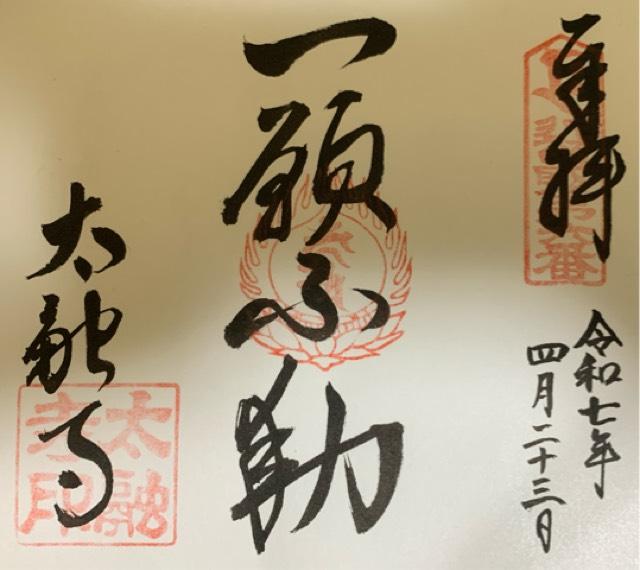 奉拝
令和七年
四月二十三日
一願ふ動
太融寺
太融寺印